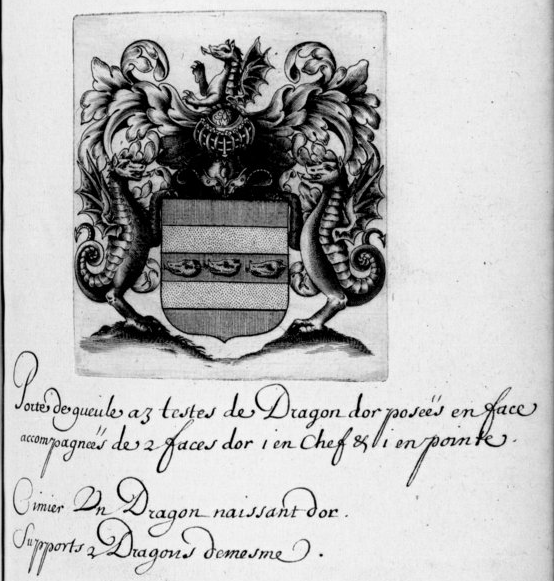 Porte de gueule a 3 testes de Dragon dor poseës en face
accompagneës de 2 faces dor 1 en Chef & 1 en pointe.
Cimier Un Dragon naissant dor.
Supports 2 Dragons demesme.